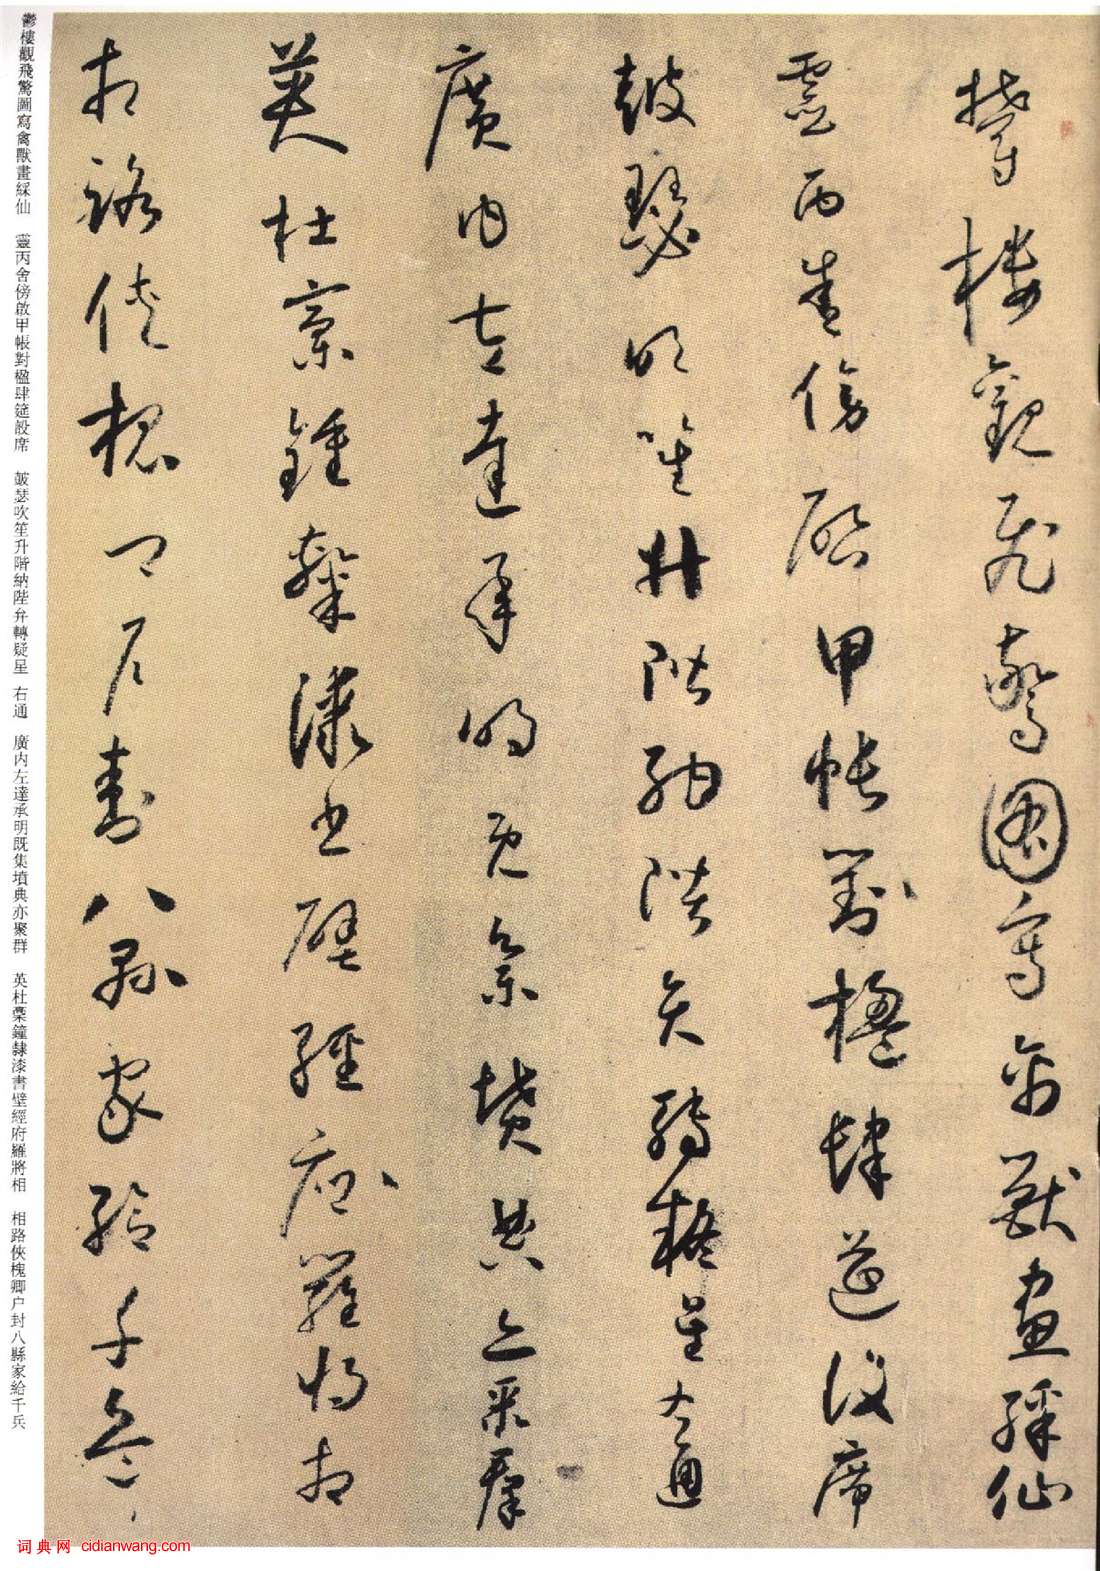 鬱樓觀飛驚圖寫禽獸畫綵仙
靈丙舍傍啟甲帳對楹肆筵設席
皷瑟吹笙升階納陛弁轉疑星右通
廣内左達承明既集墳典亦聚群
英杜稾鍾隸漆書壁經府羅將相
相路俠槐卿户封八縣家給千兵
鬱樓觀飛驚圖寫禽獸畫綵仙 靈丙舍傍啟甲帳對楹肆筵設席 皷瑟吹笙升階納陛弁轉疑星 右通 廣内左達承明既集墳典亦聚群 英杜稾鐘隸漆書壁經府羅將相 相路俠槐卿户封八縣家給千兵
词典网 cidianwang.com